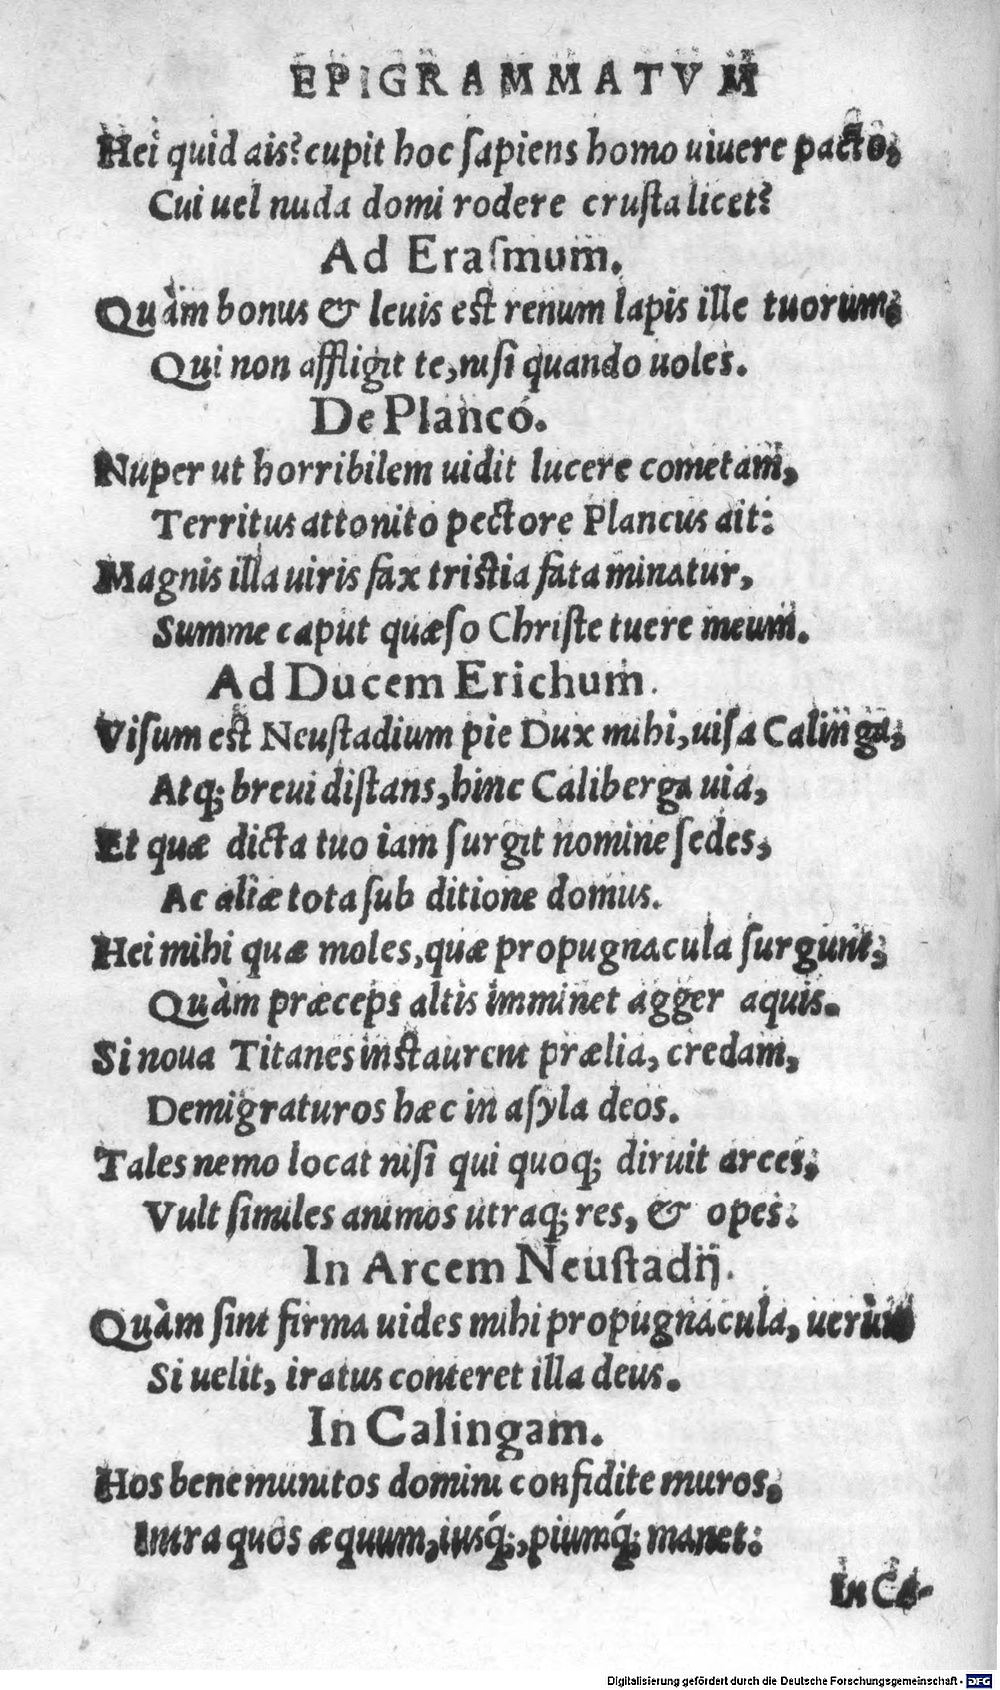 EPIGRAMMATVM
Hei quid ais? cupit hoc ſapiens homo uiuere pacto,
Cui uel nuda domi rodere cruſta licet?
Ad Eraſmum.
Quàm bonus & leuis eſt renum lapis ille tuorum,
Qui non affligit te, niſi quando uoles.
De Planco.
Nuper ut horribilem uidit lucere cometam,
Territus attonito pectore Plancus ait:
Magnis illa uiris fax triſtia fata minatur,
Summe caput quæſo Chriſte tuere meum.
Ad Ducem Erichum.
Viſum eſt Neuſtadium pie Dux mihi, uiſa Calinga,
Atq; breui diſtans, hinc Caliberga uia,
Et quæ dicta tuo iam ſurgit nomine ſedes,
Ac aliæ tota ſub ditione domus.
Hei mihi quæ moles, quæ propugnacula ſurgunt,
Quàm præceps altis imminet agger aquis.
Si noua Titanes inſtaurent prælia, credam,
Demigraturos hæc in aſyla deos.
Tales nemo locat niſi qui quoq; diruit arces,
Vult ſimiles animos utraq; res, & opes.
In Arcem Neuſtadij.
Quàm ſint firma uides mihi propugnacula, uerùm
Si uelit, iratus conteret illa deus.
In Calingam.
Hos bene munitos domini confidite muros,
Intra quos æquum, iusq́;, piumq́; manet.
In Ca-
Digitalisierung gefördert durch die Deutsche Forschungsgemeinschaft - DFG